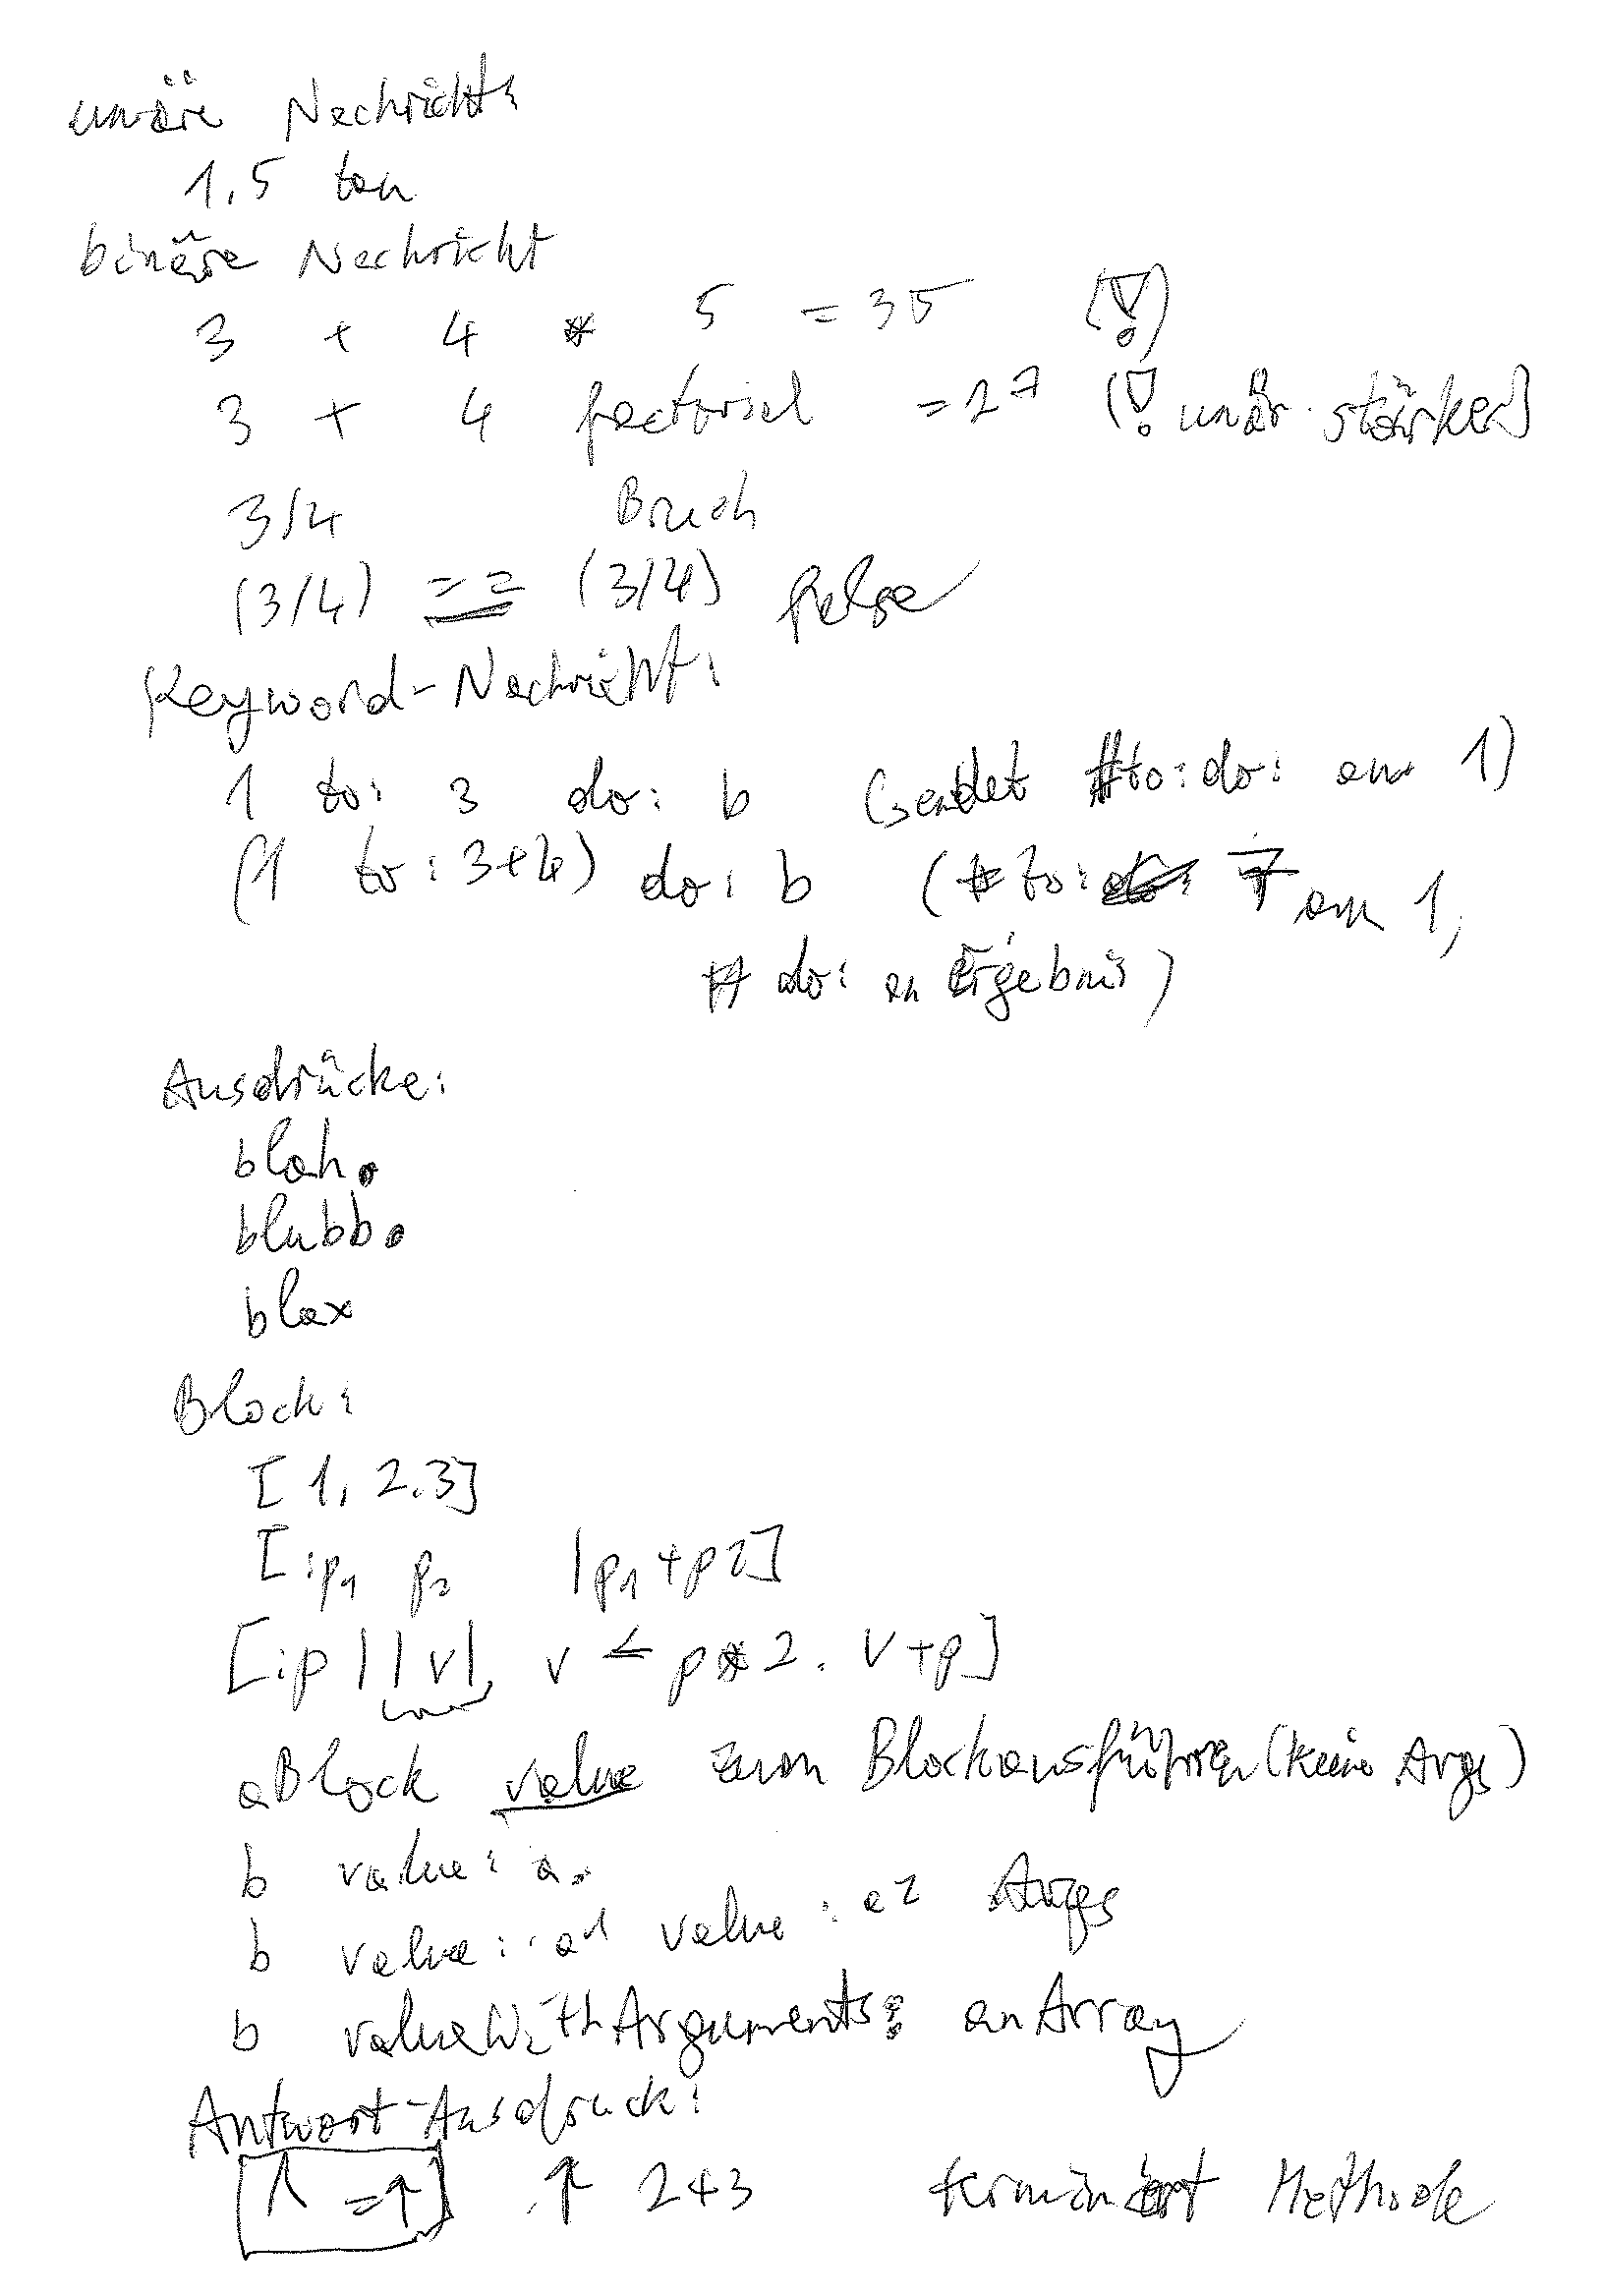 unäre Nachricht:
1.5 tan
binäre Nachricht
3 + 4 * 5 = 35 (!)
3 + 4 factorial = 27 (! unär stärker)
3/4 Bruch
(3/4) == (3/4) false
Keyword-Nachricht:
1 to: 3 do: b (sendet #to:do: an 1)
(1 to: 3+4) do: b (#to: 7 an 1,
# do: an Ergebnis)
Ausdrücke:
blah.
blubb.
blax
Block:
[1. 2.3]
[:p1 p2 |p1+p2]
[:p||v| v ← p*2. v+p]
aBlock value zum Blockausführen (keine Args)
b value: a.
b value: a1 value: a2 Args
b valueWithArguments: anArray
Antwort-Ausdruck:
^ =↑ ↑ 2+3 terminiert Methode